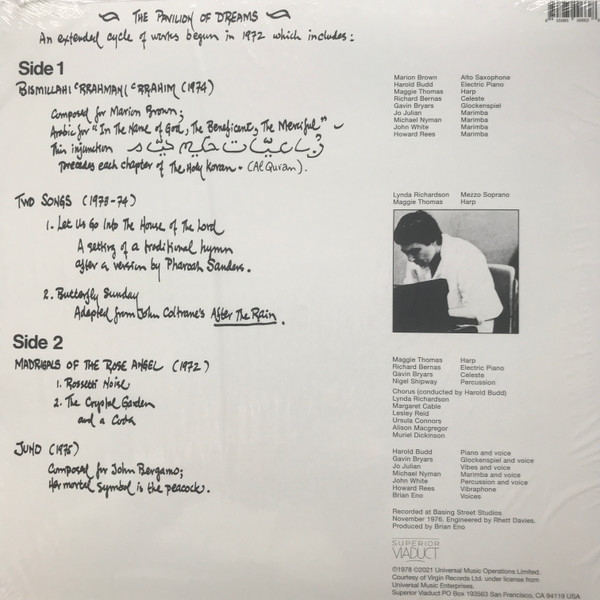 THE PAVILION OF DREAMS
An extended cycle of works begun in 1972 which includes:
Side 1
BISMILLAHI 'RRAHMANI 'RRAHIM (1974)
Composed for Marion Brown;
Arabic for "In The Name of God, The Beneficent, The Merciful" –
This injunction حكيم
precedes each chapter of The Holy Koran. (Al Qur'an).
Marion Brown Alto Saxophone
Harold Budd Electric Piano
Maggie Thomas Harp
Richard Bernas Celeste
Gavin Bryars Glockenspiel
Jo Julian Marimba
Michael Nyman Marimba
John White Marimba
Howard Rees Marimba
TWO SONGS (1973-74)
1. Let Us Go Into The House of The Lord
A setting of a traditional hymn
after a version by Pharoah Sanders.
2. Butterfly Sunday
Adapted from John Coltrane's After The Rain.
Lynda Richardson Mezzo Soprano
Maggie Thomas Harp
Side 2
MADRIGALS OF THE ROSE ANGEL (1972)
1. Rossetti Noise
2. The Crystal Garden
and a Coda
Maggie Thomas Harp
Richard Bernas Electric Piano
Gavin Bryars Celeste
Nigel Shipway Percussion
Chorus (conducted by Harold Budd)
Lynda Richardson
Margaret Cable
Lesley Reid
Ursula Connors
Alison Macgregor
Muriel Dickinson
JUNO (1975)
Composed for John Bergamo;
Her mortal symbol is the peacock.
Harold Budd Piano and voice
Gavin Bryars Glockenspiel and voice
Jo Julian Vibes and voice
Michael Nyman Marimba and voice
John White Percussion and voice
Howard Rees Vibraphone
Brian Eno Voices
Recorded at Basing Street Studios
November 1976. Engineered by Rhett Davies.
Produced by Brian Eno
SUPERIOR
VIADUCT
©1978 ©2021 Universal Music Operations Limited.
Courtesy of Virgin Records Ltd. under license from
Universal Music Enterprises.
Superior Viaduct PO Box 193563 San Francisco, CA 94119 USA